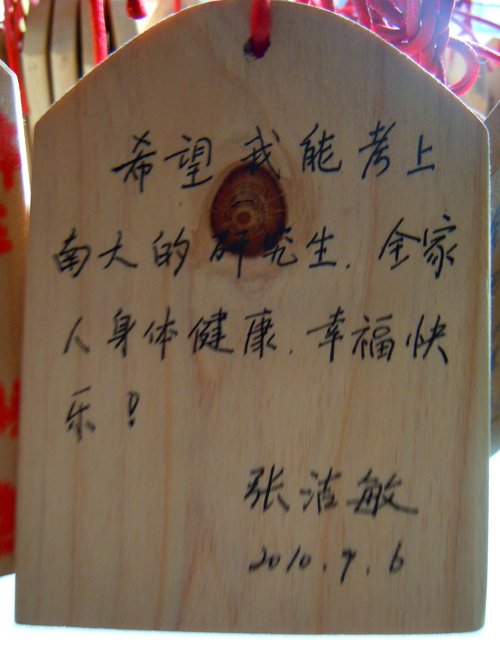 希望我能考上
南大的研究生.全家
人身体健康.幸福快
乐!
张洁敏
2010.9.6